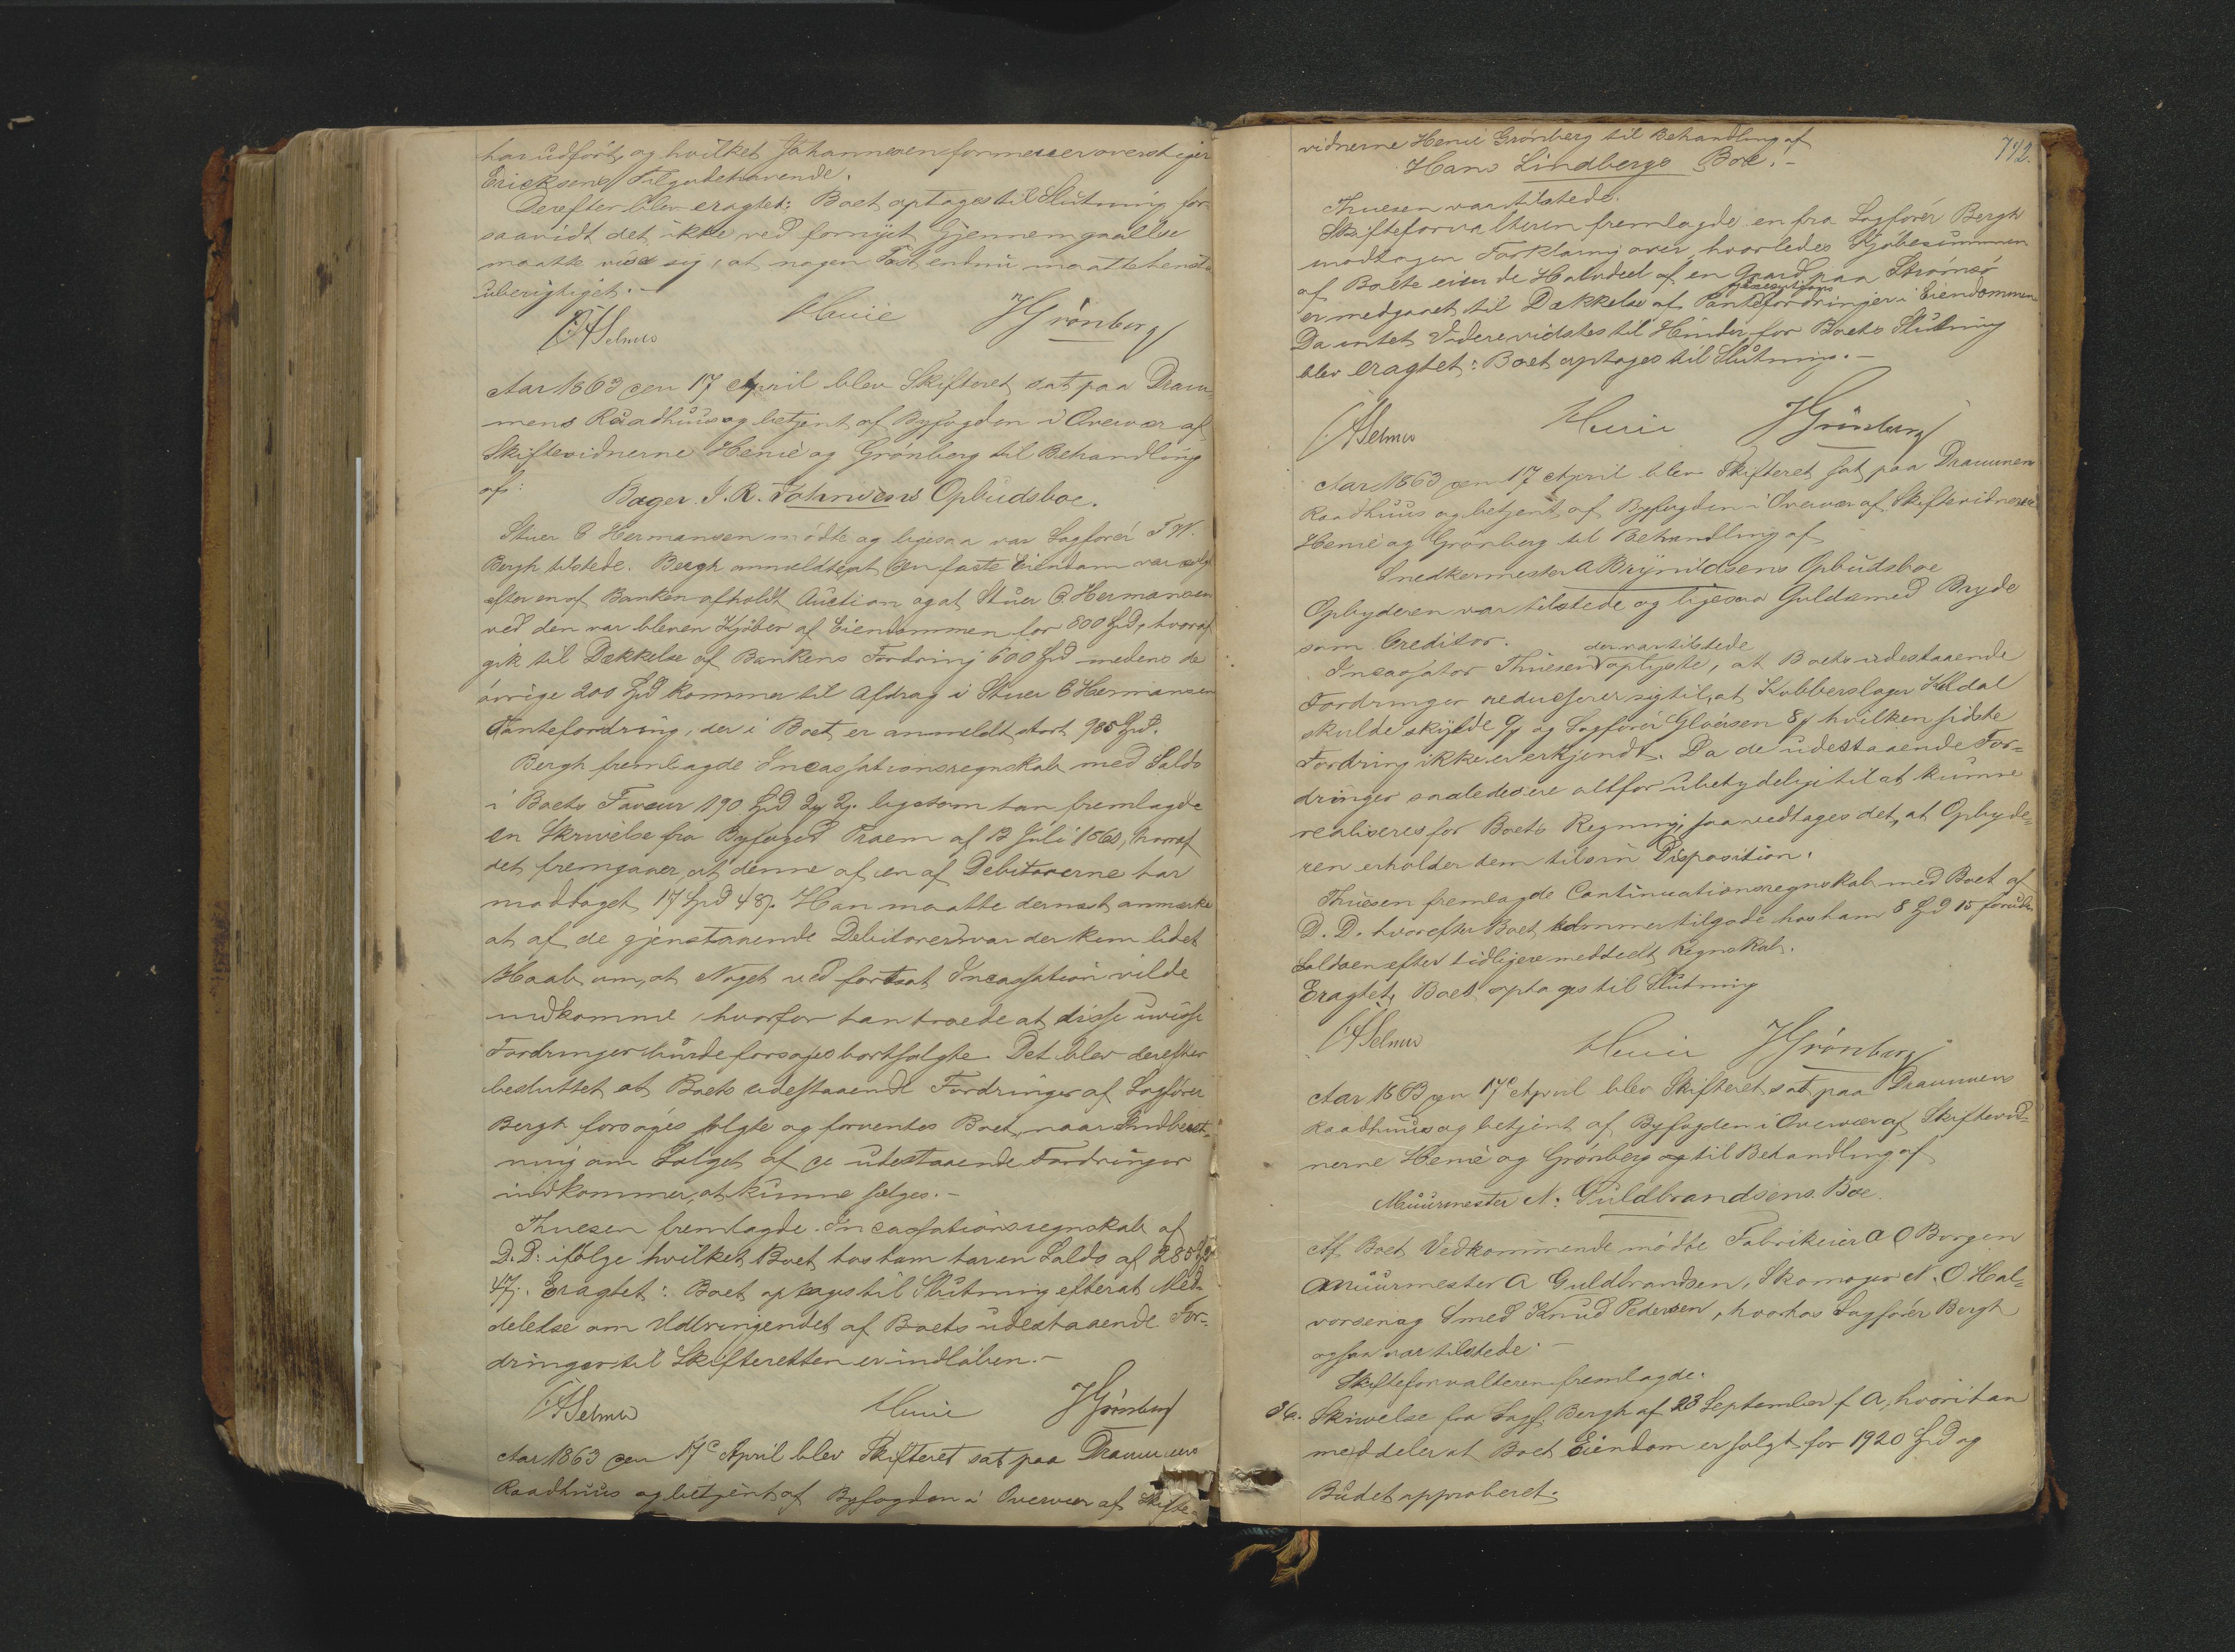 har udført, og hvilket Johannesen formener overstiger
Ericksens Tilgodehavende.
Derefter blev eragtet: Boet optages til Slutning for-
saavidt det ikke ved fornyet Gjennemgaaelse
maatte vise sig, at nogen Post endnu maatte henstaa
uberigtiget.-
CASelmer Henie JGrönberg
Aar 1863 den 17 April blev Skifteret sat paa Dram-
mens Raadhuus og betjent af Byfogden i Overvær af
Skiftevidnerne Henie og Grönberg til Behandling
af:
Bager J. R. Johnsens Opbudsboe.
Stuer C Hermansen mödte og ligesaa var Sagförer T W.
Bergh tilstede. Bergh anmeldte, at den faste Eiendom var solgt
efter en af Banken afholdt Auction og at Stuer C. Hermansen
ved den var bleven Kjöber af Eiendommen for 800 Spd, hvoraf
gik til Dækkelse af Bankens Fordring 600 Spd medens de
övrige 200 Spd kommer til Afdrag i Stuer C Hermansen
Pantefordring, der i Boet er anmeldt stort 985 Spd.
Bergh fremlagde Incassationsregnskab med Saldo
i Boets Faveur 190 Spd 2 2 ligesom han fremlagde
en Skrivelse fra Byfoged Praem af 13 Juli 1860, hvoraf
det fremgaaer, at denne af en af Debitorerne har
modtaget 17 Spd 48. Han maatte dernæst anmærke
at af de gjenstaaende Debitorer var der kun lidet
Haab om, at Noget ved fortsat Incassation vilde
indkomme, hvorfor han troede at disse uvisse
Fordringer burde forsøges bortsolgte. Det blev derefter
besluttet at Boets udestaaende Fordringer af Sagförer
Bergh forsöges solgte og forventes Boet, naar Indberet-
ning om Salget af de udestaaende Fordringer
indkommer, at kunne sælges.-
Thuesen fremlagde Incassationsregnskab af
D. D. ifölge hvilket Boet hos ham har en Saldo af 28
47. Eragtet: Boet optages til Slutning efterat Med-
delelse om Udbringendet af Boets udestaaende For-
dringer til Skifteretten er indlöben.-
CASelmer Henie JGrönberg
Aar 1863 den 17de April blev Skifteret sat paa Drammens
Raadhuus og betjent af Byfogden i Overvær af Skifte-
742.
vidnerne Henie Grönberg til Behandling af
Hans Lindbergs Boe.-
Thuesen var tilstede.
Skifteforvalteren fremlagde en fra Sagförer Bergh
modtagen Forklaring over, hvorledes Kjöbesummen
af Boets eiende Halvdeel af en Gaard paa Strömsö
er medgaaet til Dækkelse af Pantefordringer i Eiendommen
Da intet Videre vidstes til Hinder for Boets Slutning
blev eragtet: Boet optages til Slutning.-
CASelmer Henie JGrönberg
Aar 1863 den 17 April blev Skifteret sat paa Drammens
Raadhuus og betjent af Byfogden i Overvær af Skiftevidnerne
Henie og Grönberg til Behandling af
Snedkermester A Brynildsens Opbudsboe
Opbyderen var tilstede og ligesaa Guldsmed Bryde
som Creditor.
der var tilstede
Incassator Thuesen oplyste, at Boets udestaaende
Fordringer reducerer sig til, at Kobberslager Koldal
skulde skylde og Sagförer Gloersen 8 hvilken sidste
Fordring ikke er erkjendt. Da de udestaaende For-
dringer saaledes ere altfor ubetydelige til at kunne
realiseres for Boets Regning, saa vedtages det, at Opbyde-
ren erholder dem til sin Disposition.
Thuesen fremlagde Continuationsregnskab med Boet af
D. D. hvorefter Boet kommer tilgode hos ham 8 Spd 15 foruden
Saldoen efter tidligere meddeelt Regnskab.
Eragtet, Boet optages til Slutning
CASelmer Henie JGrönberg
Aar 1863 den 17de April blev Skifteret sat paa Drammens
Raadhuus og betjent af Byfogden i Overvær af Skiftevid-
nerne Henie og Grönberg og til Behandling af
Muurmester N. Guldbrandsens Boe.
Af Boet Vedkommende mödte Fabrikeier A O Borgen
Muurmester A Guldbrandsen, Skomager N. O. Hal-
vorsen og Smed Knud Pedersen, hvorhos Sagförer Bergh
ogsaa var tilstede.-
Skifteforvalteren fremlagde.
36. Skrivelse fra Sagf. Bergh af 23 September f A, hvori han
meddeler at Boets Eiendom er solgt for 1920 Spd og
Budet approberet.